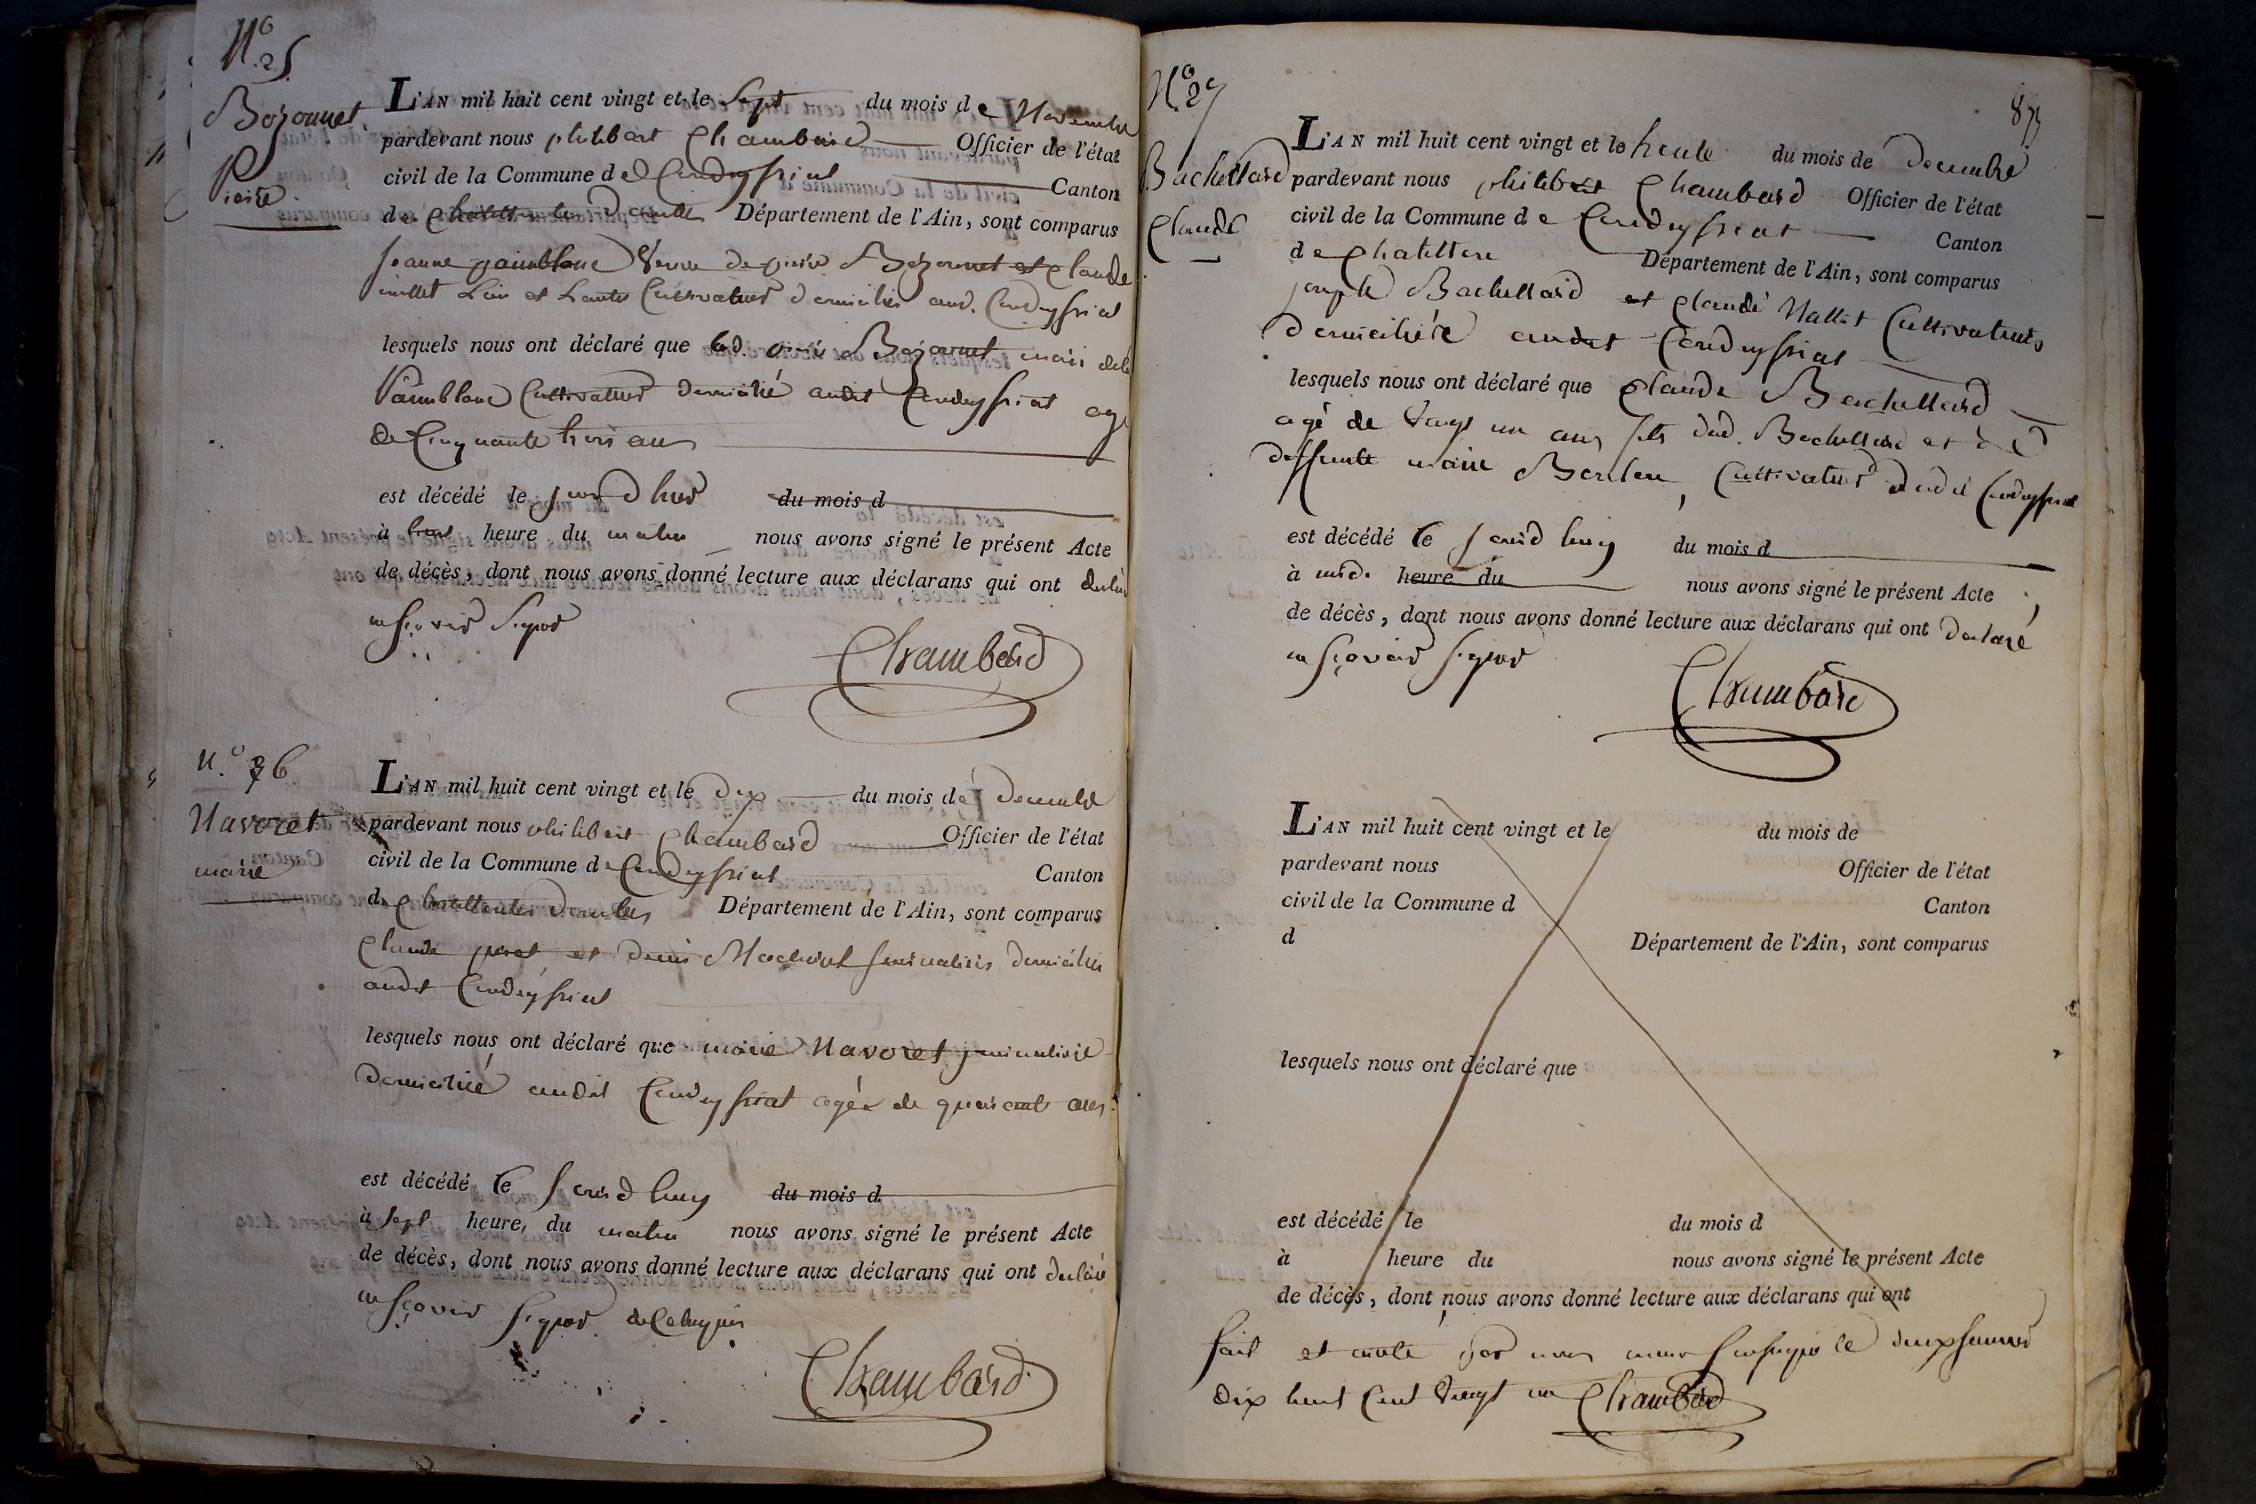 N.º 25.
Bozonnet
Pierre.
L'AN mil huit cent vingt et le Sept du mois de Novembre
pardevant nous philibert Chambard Officier de l'état
civil de la Commune de Condeyssiat Canton
de Chatillon les Dombes Département de l'Ain, sont comparus
Jeanne painblanc Veuve de pierre Bozonnet et Claude
l'un et l'autre Cultivateurs domiciliés aud. Condeyssiat
lesquels nous ont déclaré que led. pierre Bozonnet mari de la
Painblanc Cultivateur domicilié audit Condeyssiat agé
de Cinquante trois ans
est décédé le jour d'hier du mois d
à trois heure du matin nous avons signé le présent Acte
de décès, dont nous avons donné lecture aux déclarans qui ont declaré
ne sçavoir signer
Chambard
N.º 26
Navoret
marie
L'AN mil huit cent vingt et le dix du mois de Decembre
pardevant nous philibert Chambard Officier de l'état
civil de la Commune de Condeyssiat Canton
de Chatillon les Dombes Département de l'Ain, sont comparus
Claude et Denis domiciliés
audit Condeyssiat
lesquels nous ont déclaré que marie Navoret journaliere
domiciliée audit Condeyssiat agée de quarante ans
est décédé le jourd'huy du mois d
à sept heure du matin nous avons signé le présent Acte
de décès, dont nous avons donné lecture aux déclarans qui ont declaré
ne sçavoir signer de ce enquis
Chambard
N.º 27
87
Bachellard
Claude
L'AN mil huit cent vingt et le trente du mois de Decembre
pardevant nous philibert Chambard Officier de l'état
civil de la Commune de Condeyssiat Canton
de Chatillon Département de l'Ain, sont comparus
joseph Bachellard et Claude Nallet Cultivateurs
domiciliés audit Condeyssiat
lesquels nous ont déclaré que Claude Bachellard
agé de Vingt un ans fils dud. Bachellard et de
deffunte marie Cultivateur dudit Condeyssiat
est décédé le jourd'huy du mois d
à midi heure du nous avons signé le présent Acte
de décès, dont nous avons donné lecture aux déclarans qui ont declaré
ne sçavoir signer
Chambard
L'AN mil huit cent vingt et le du mois de
pardevant nous Officier de l'état
civil de la Commune d Canton
d Département de l'Ain, sont comparus
lesquels nous ont déclaré que
est décédé le du mois d
à heure du nous avons signé le présent Acte
de décès, dont nous avons donné lecture aux déclarans qui ont
fait et par nous maire soussigné le janvier
dix huit Cent Vingt un Chambard